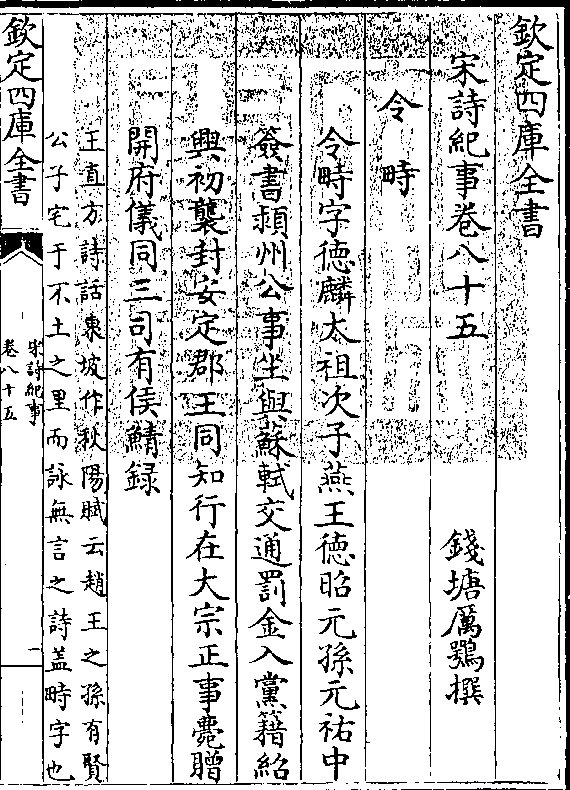 欽定四庫全書
宋詩紀事卷八十五
錢塘厲鶚撰
令時
令時字德麟太祖次子燕王德昭元孫元祐中
簽書潁州公事坐與蘇軾交通罰金入黨籍紹
興初襲封安定郡王同知行在大宗正事薨贈
開府儀同三司有侯鯖録
王直方詩話東坡作秋陽賦云趙王之孫有賢
公子宅于不土之里而詠無言之詩蓋時字也
欽定四庫全書
宋詩紀事
卷八十五
一